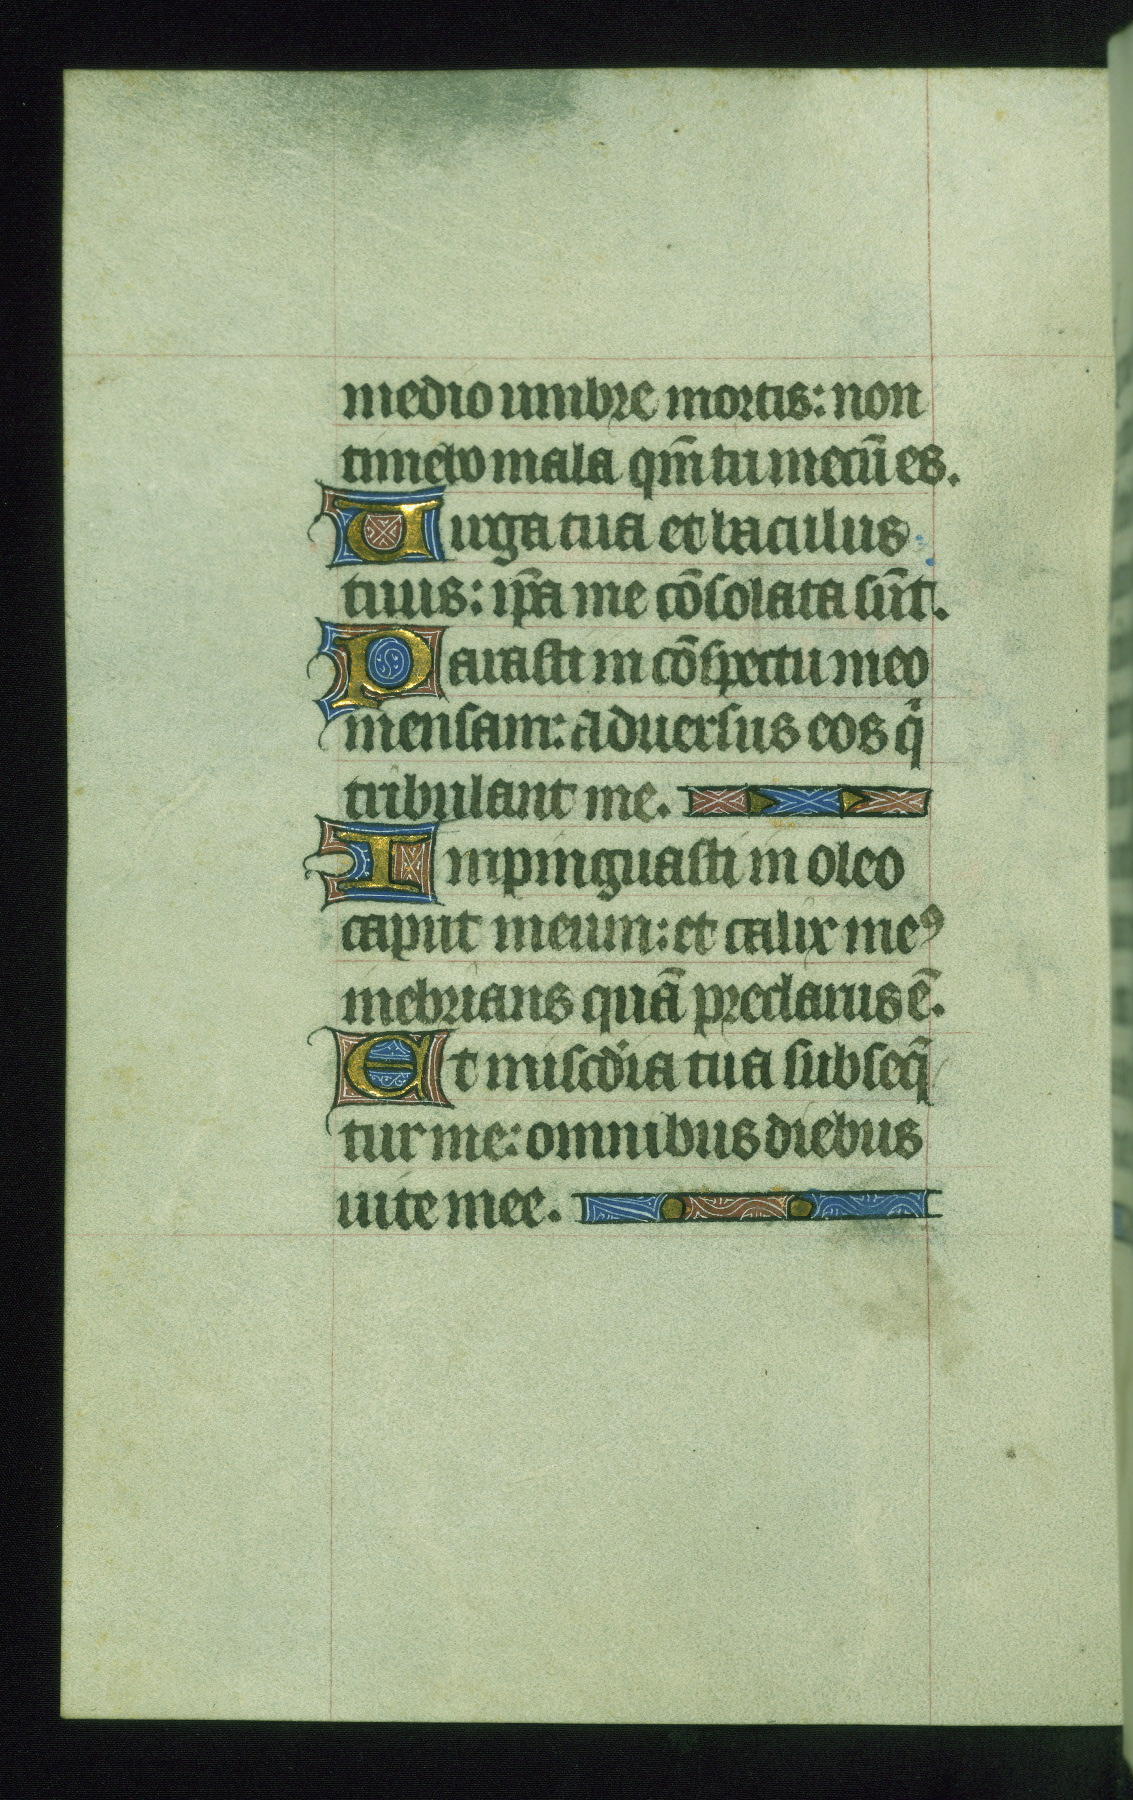 medio umbre mortis: non
timebo mala qm̄ tu mecū es.
Uirga tua et baculus
tuus: ip̄a me cōsolata sūt.
Parasti in cōspectu meo
mensam: aduersus eos qͥ
tribulant me.
Inpinguasti in oleo
caput meum: et calix meꝰ
inebrians quā preclarus ē.
Et misc̄dia tua subseq̄
tur me: omnibus diebus
uite mee.